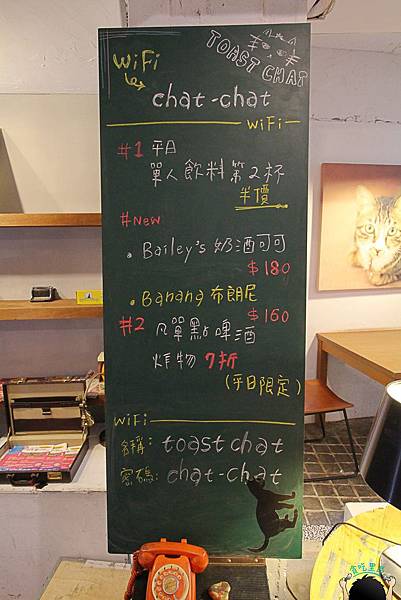 WiFi
TOAST CHAT
chat-chat
WiFi
#1 平日
單人飲料第2杯
半價
#New
Bailey's 奶酒可可
$180
Banana 布朗尼
$160
#2 凡單點啤酒
炸物 7折
(平日限定)
WiFi
名稱: toast chat
密碼: chat-chat